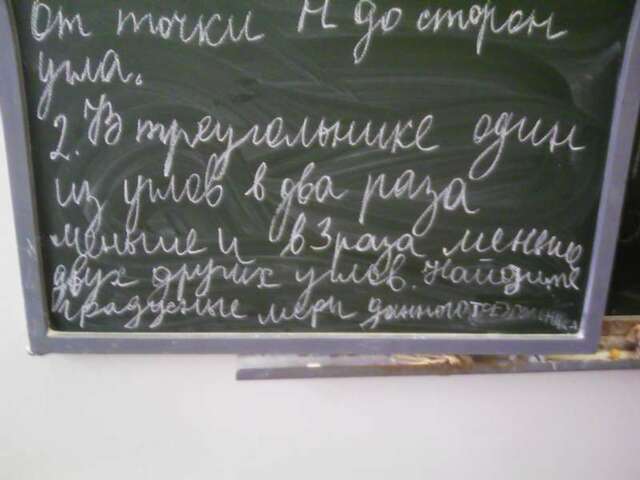 от точки М до сторон
угла.
2. В треугольнике один
из углов в два раза
меньше и в 3 раза меньше
двух других углов. Найдите
градусные меры данного треугольника